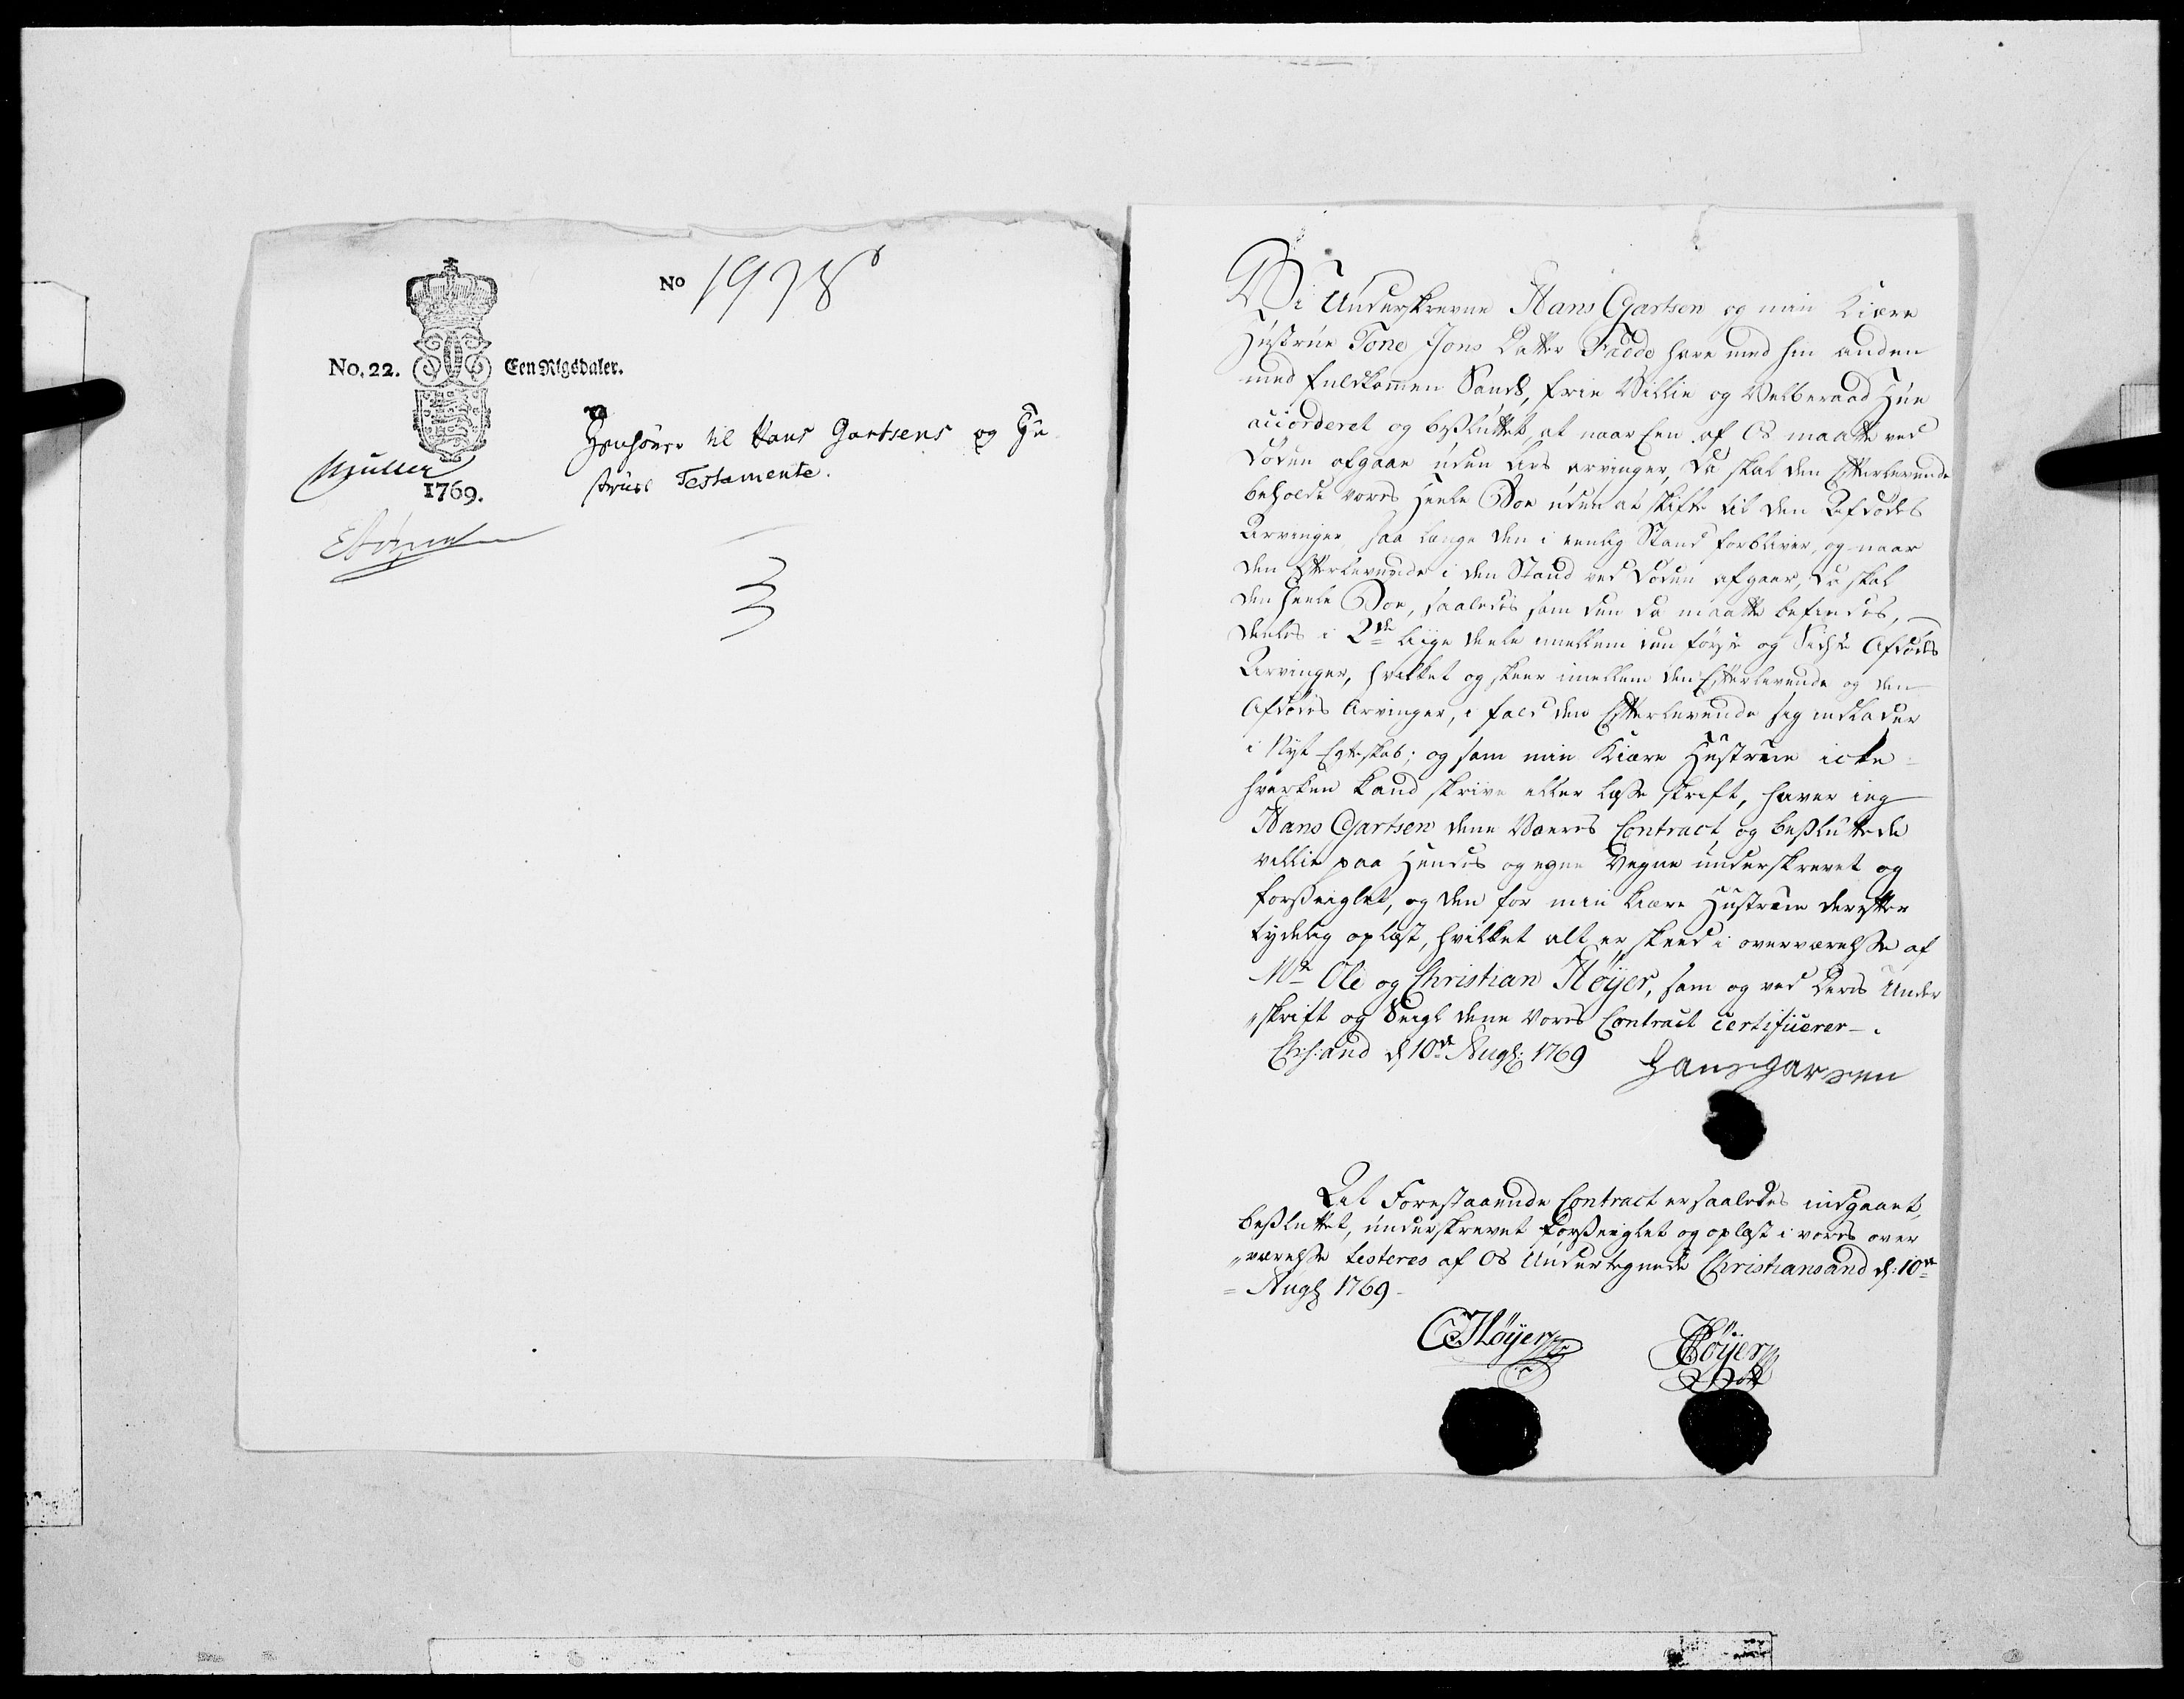 No 1978
No. 22. Een Rigsdaler.
Henhører til Hans Gartsens og Hu
struis Testamente.
Müller
1769.
3
Vi Underskrevne Hans Gartsen og min Kiære
Hustrue Tone Jons Datter Fædde have med hin anden
med fuldkommen Sands, frie Villie og Velberaad Hue
accorderet og besluttet at naar Een af Os maatte ved
Døden afgaae uden Livs arvinger, da skal den Efterlevende
beholde vores Heele Boe uden at skifte til den Afdødes
Arvinger, saa længe den i eenlig Stand forbliver, og naar
den Efterlevende i den Stand ved Døden afgaar, da skal
den heele Boe, saaledes som den da maatte befindes,
deeles i 2de liige deele imellem den først og Sidst Afdødes
Arvinger, hvilket og skeer imellem den Efterlevende og den
Afdødes Arvinger, i fald den Efterlevende sig indlader
i Nyt Egteskab; og som min Kiære Hustrue icke
hverken kand skrive eller læsse skrift, haver ieg
Hans Gartsen dene Voeres Contract og besluttede
villie paa Hendes og egne Vegne underskrevet og
forsseiglet, og den for min kiære Hustrue derefter
tydelig oplæst, hvilket alt er skeed i overværelsse af
Mr Ole og Christian Høyer, som og ved Deres Under
skrift og Seigl dene Vores Contract certificerer.
Chr:s:and d 10de Augs: 1769 Hans Garsen
At Forestaaende Contract er saaledes indgaaet,
besluttet, underskrevet forsseiglet og oplæst i vores over
værelsse testeres af Os Undertegnede Christiansand d: 10de
Augs 1769
CHøyer Høyer